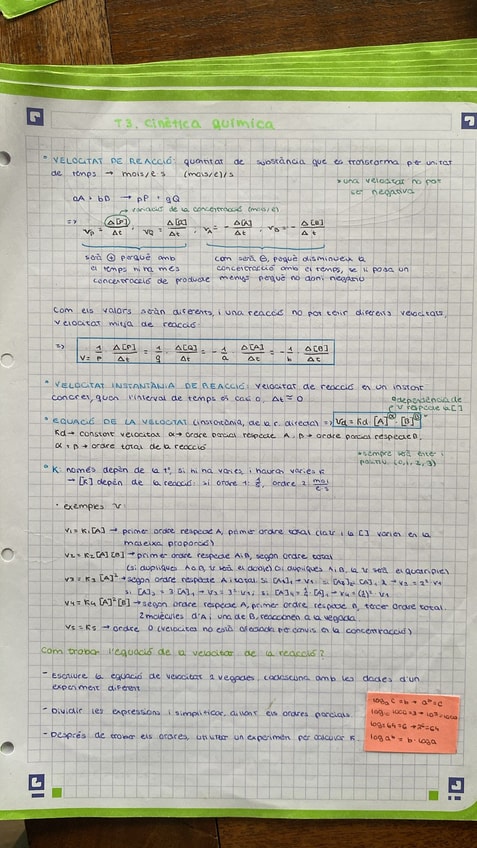 T3. Cinètica química
• VELOCITAT DE REACCIÓ: quantitat de substància que es transforma per unitat
de temps → mols/L·s (mols/L)/s
• una velocitat no pot
ser negativa
aA + bB → pP + qQ
variació de la concentració (mols/L)
=> Vp = Δ[P]/Δt , VQ = Δ[Q]/Δt , VA = - Δ[A]/Δt , VB = - Δ[B]/Δt
serà ⊕ perquè amb
el temps hi ha més
concentració de producte
com serà ⊖, perquè disminueix la
concentració amb el temps, se li posa un
menys perquè no doni negatiu
Com els valors seran diferents, i una reacció no pot tenir diferents velocitats,
velocitat mitja de reacció:
=> V = 1/p · Δ[P]/Δt = 1/q · Δ[Q]/Δt = - 1/a · Δ[A]/Δt = - 1/b · Δ[B]/Δt
• VELOCITAT INSTANTÀNIA DE REACCIÓ: velocitat de reacció en un instant
concret, quan l'interval de temps és casi 0, Δt ≈ 0
• dependència de
V respecte a []
• EQUACIÓ DE LA VELOCITAT (instantània, de la r. directa) => Vd = Kd [A]^α · [B]^β
Kd → constant velocitat α → ordre parcial respecte A, β → ordre parcial respecte B,
α + β → ordre total de la reacció
• sempre serà enter i
positiu (0, 1, 2, 3)
• K: només depèn de la tª, si hi ha varies, hi haurà varies K
→ [K] depèn de la reacció: si ordre 1:
• exemples V:
V1 = K1[A] → primer ordre respecte A, primer ordre total (la V i la [] varien en la
mateixa proporció)
V2 = K2[A][B] → primer ordre respecte A i B, segon ordre total
(si dupliques A o B, V serà el doble) (si dupliques A i B, la V serà el quadruple)
V3 = K3[A]² → segon ordre respecte A i total
V4 = K4[A]²[B] → segon ordre respecte A, primer ordre respecte B, tercer ordre total.
2 molècules d'A i una de B, reaccionen a la vegada
V5 = K5 → ordre 0 (velocitat no està afectada per canvis en la concentració)
Com trobar l'equació de la velocitat de la reacció?
- Escriure la equació de velocitat 2 vegades, cadascuna amb les dades d'un
experiment diferent.
- Dividir les expressions i simplificar, aïllant els ordres parcials.
- Després de trobar els ordres, utilitzar un experiment per calcular K.
log a c = b → a^b = c
log 1000 = 3 → 10³ = 1000
log a^b = b · log a